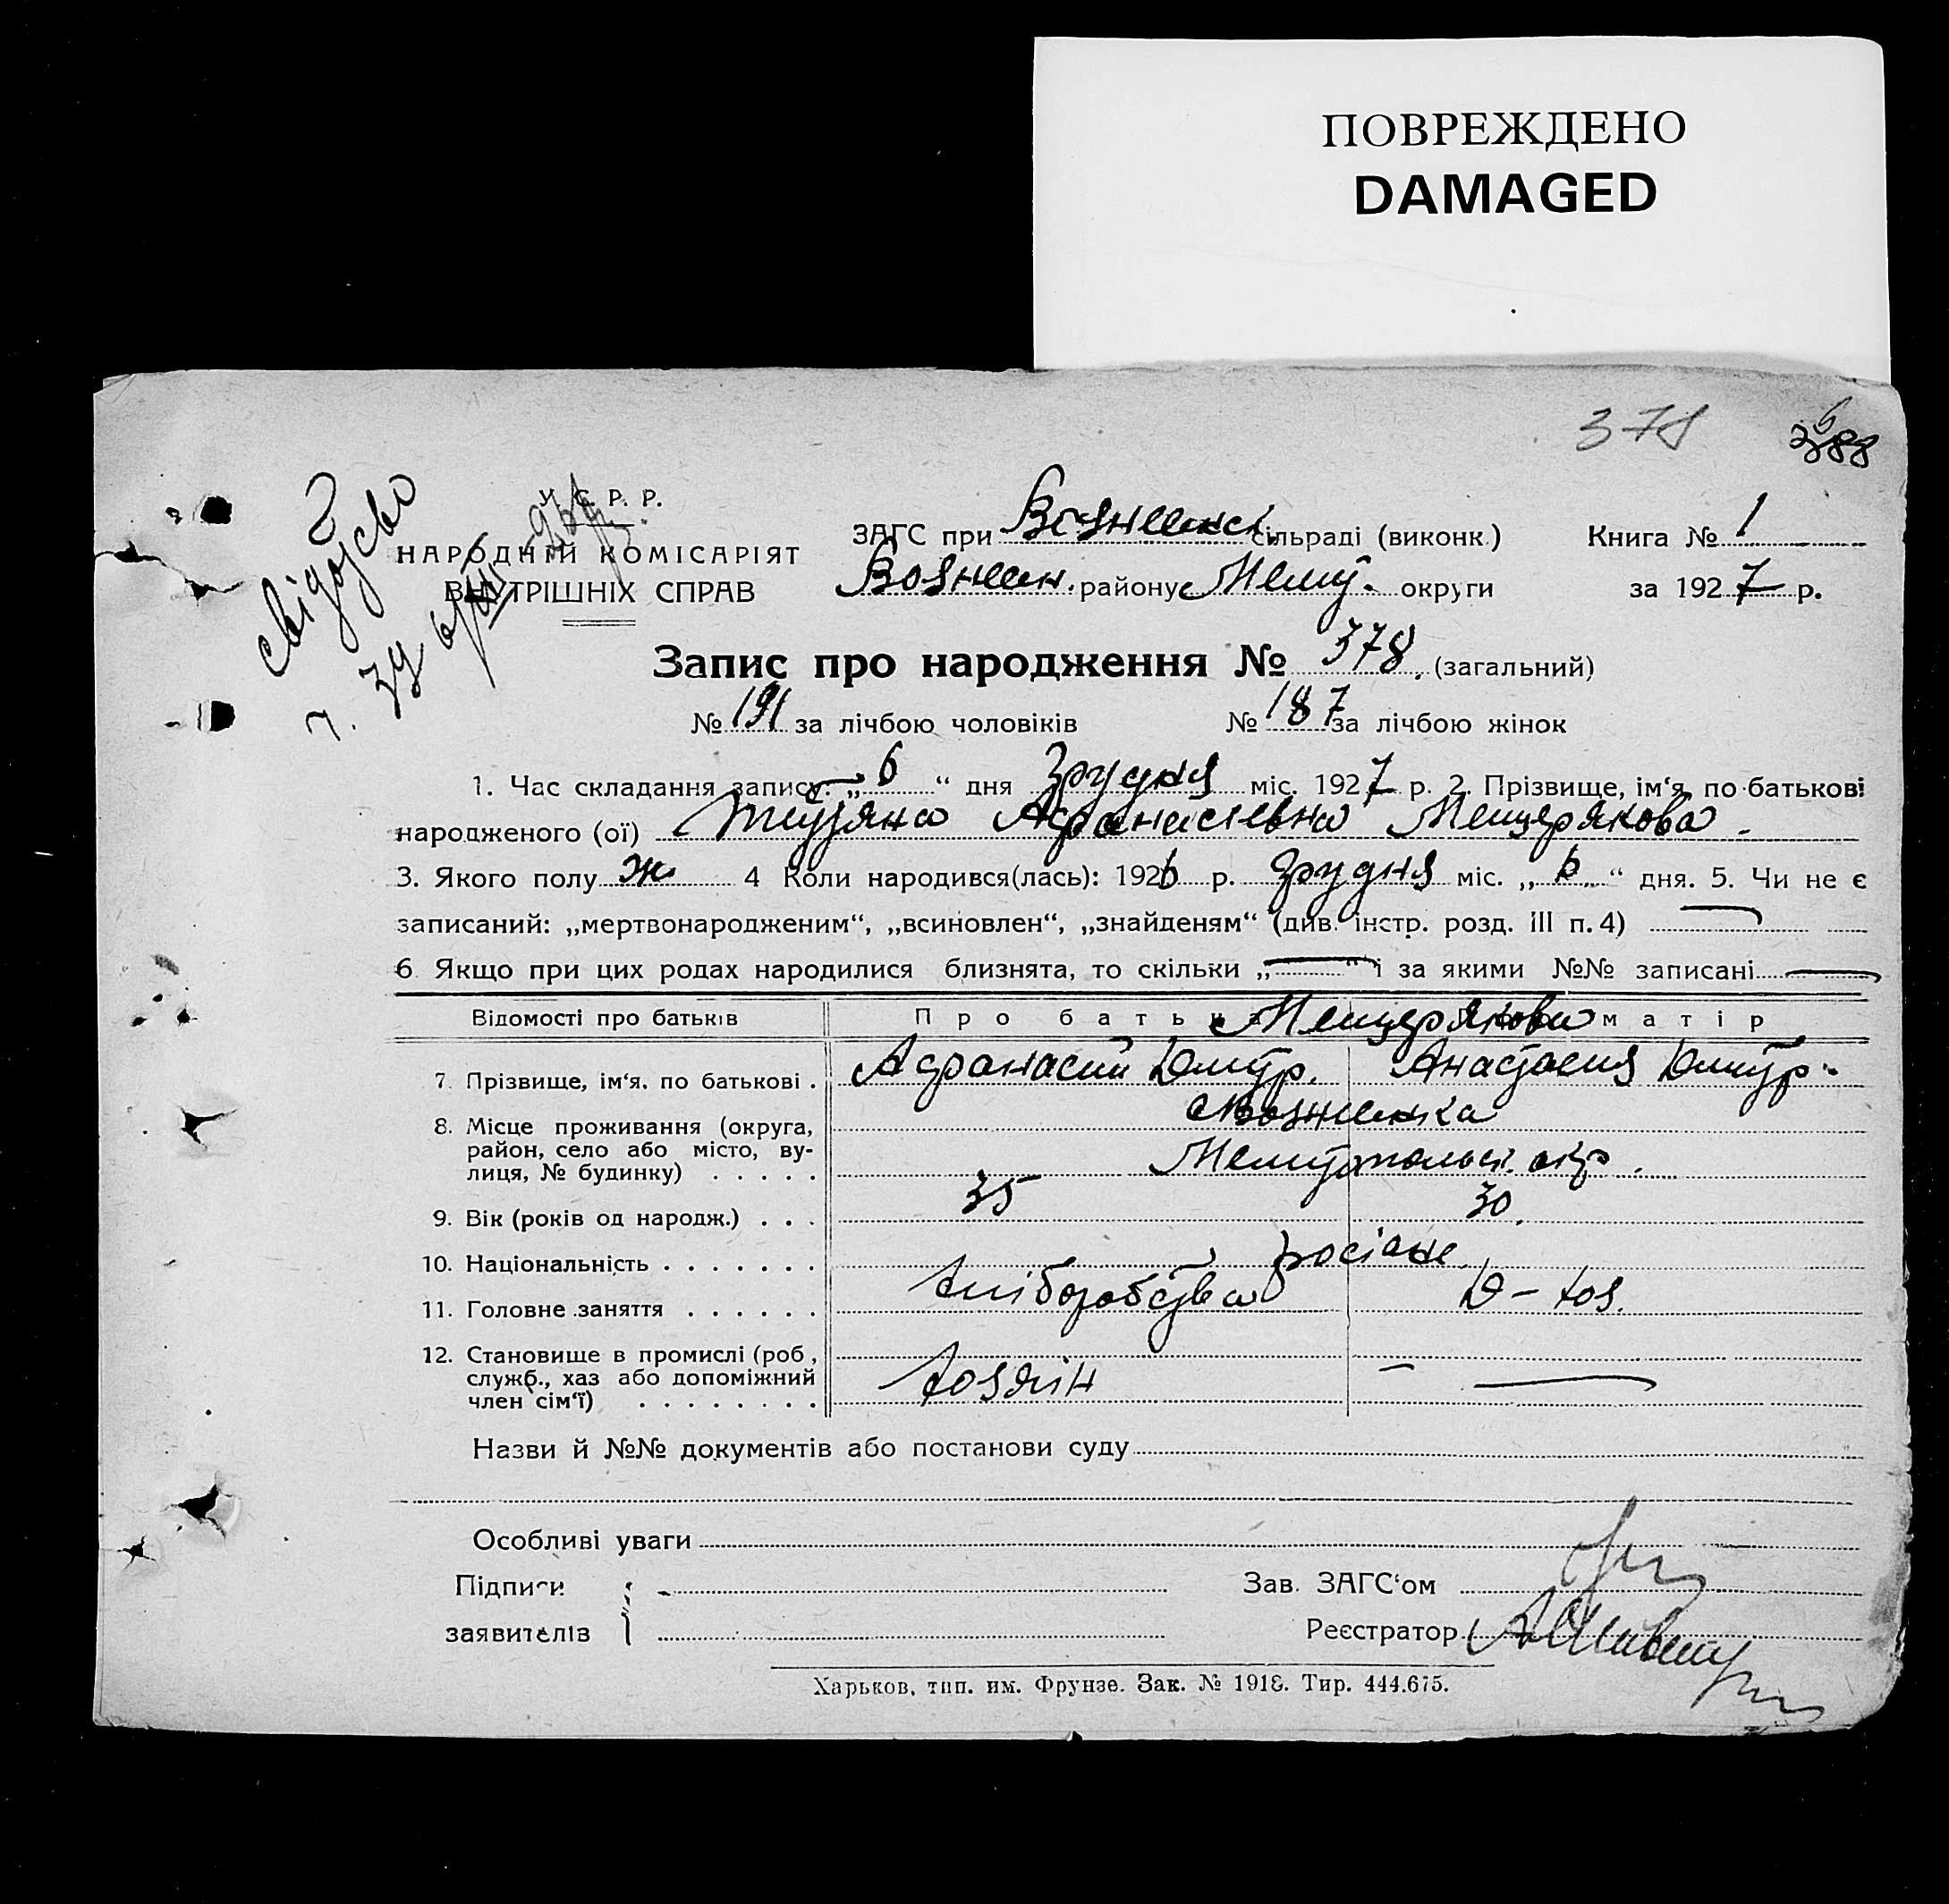 ПОВРЕЖДЕНО
DAMAGED
378
У. С. Р. Р.
НАРОДНІЙ КОМІСАРІЯТ
ВНУТРІШНІХ СПРАВ
ЗАГС при Вознесенс. сільраді (виконк.) Книга № 1
Вознесен. району Мелит. округи за 1927 р.
Запис про народження № 378. (загальний)
№ 191 за лічбою чоловіків № 187 за лічбою жінок
1. Час складання запису: „6“ дня Грудня міс. 1927 р. 2. Прізвище, ім‘я, по батькові
народженого (ої) Татяна Афанасієвна Мещерякова.
3. Якого полу ж 4 Коли народився(лась): 1926 р. Грудня міс. „6“ дня. 5. Чи не є
записаний: „мертвонародженим“, „всиновлен“, „знайденям“ (див. інстр. розд. III п. 4) —
6 Якщо при цих родах народилися близнята, то скільки „—“ і за якими №№ записані —
Відомості про батьків Про батька Про матір
Мещерякови
7. Прізвище, ім‘я, по батькові . Афанасий Дмитр. Анастасия Дмитр.
8. Місце проживання (округа,
район, село або місто, ву-
лиця, № будинку) . . . . .
с Вознесенка
Мелитопольск. окр.
9. Вік (років од народж.) . . . 35 30.
10. Національність . . . . . . . росіане
11. Головне заняття . . . . . . Хліборобства Д – хоз.
12. Становище в промислі (роб.,
служб., хаз або допоміжний
член сім‘ї) . . . . . . . .
хозяін —
Назви й №№ документів або постанови суду
Особливі уваги
Підписи Зав. ЗАГС‘ом
заявителів Реєстратор
Харьков, тип. им. Фрунзе. Зак. № 1918. Тир. 444.675.